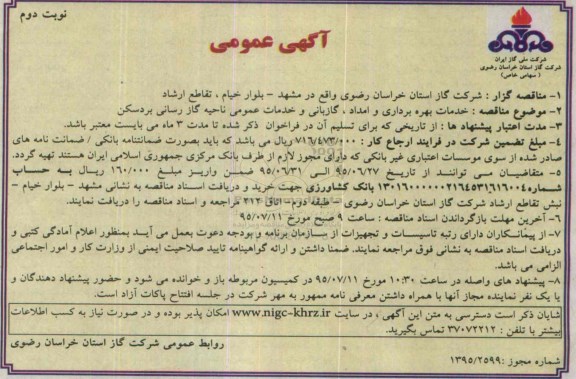 نوبت دوم
آگهی عمومی
شرکت ملی گاز ایران
شرکت گاز استان خراسان رضوی
( سهامی خاص)
۱- مناقصه گزار : شرکت گاز استان خراسان رضوی واقع در مشهد - بلوار خیام ، تقاطع ارشاد
۲- موضوع مناقصه : خدمات بهره برداری و امداد ، گازبانی و خدمات عمومی ناحیه گاز رسانی بردسکن
۳- مدت اعتبار پیشنهاد ها : از تاریخی که برای تسلیم آن در فراخوان ذکر شده تا مدت ۳ ماه می بایست معتبر باشد.
۴- مبلغ تضمین شرکت در فرایند ارجاع کار : ۷۱۶/۴۷۳/۰۰۰ ریال می باشد که باید بصورت ضمانتنامه بانکی / ضمانت نامه های
صادر شده از سوی موسسات اعتباری غیر بانکی که دارای مجوز لازم از طرف بانک مرکزی جمهوری اسلامی ایران هستند تهیه گردد.
۵- متقاضیان می توانند از تاریخ ۹۵/۰۶/۲۷ الی ۹۵/۰۶/۳۱ ضمن واریز مبلغ ۱۶۰/۰۰۰ ریال به حساب
شماره ۱۳۰۱۶۰۰۰۰۰۰۲۱۶۴۵۳۱۶۱۶۰۰۴ بانک کشاورزی جهت خرید و دریافت اسناد مناقصه به نشانی مشهد - بلوار خیام -
نبش تقاطع ارشاد شرکت گاز استان خراسان رضوی - طبقه دوم - اتاق ۲۱۲ مراجعه و اسناد مناقصه را دریافت نمایند.
۶- آخرین مهلت بازگرداندن اسناد مناقصه : ساعت ۹ صبح مورخ ۹۵/۰۷/۱۱
۷- از پیمانکاران دارای رتبه تاسیسات و تجهیزات از سازمان برنامه و بودجه دعوت بعمل می آید بمنظور اعلام آمادگی کتبی و
دریافت اسناد مناقصه به نشانی فوق مراجعه نمایند. ضمنا داشتن و ارائه گواهینامه تایید صلاحیت ایمنی از وزارت کار و امور اجتماعی
الزامی می باشد.
۸- پیشنهاد های واصله در ساعت ۱۰:۳۰ مورخ ۹۵/۰۷/۱۱ در کمیسیون مربوطه باز و خوانده می شود و حضور پیشنهاد دهندگان و
یا یک نفر نماینده مجاز آنها با همراه داشتن معرفی نامه ممهور به مهر شرکت در جلسه افتتاح پاکات آزاد است.
شایان ذکر است دسترسی به متن این آگهی ، در سایت www.nigc-khrz.ir امکان پذیر بوده و در صورت نیاز به کسب اطلاعات
بیشتر با تلفن : ۳۷۰۷۲۲۱۲ تماس بگیرید.
روابط عمومی شرکت گاز استان خراسان رضوی
شماره مجوز :۱۳۹۵/۲۵۹۹